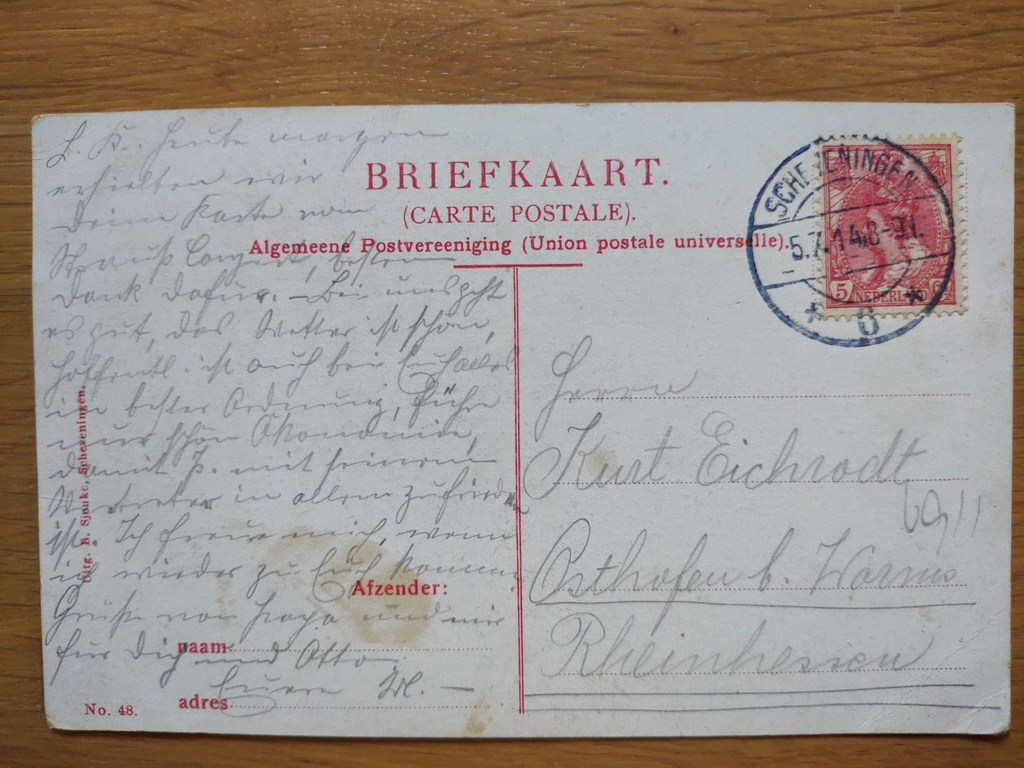 BRIEFKAART.
(CARTE POSTALE).
Algemeene Postvereeniging (Union postale universelle).
SCHEVENINGEN
5.7.14.8-9V.
6
5 NEDERLAND
L. K. Heute morgen
erhielten wir
Deine Karte vom
Strauß Concert, besten
Dank dafür. – Bei uns geht
es gut, das Wetter ist schön,
hoffentl. ist auch bei Euch alles
in bester Ordnung, führe
nur schön Ökonomie,
damit P. mit seinem
Vertreter in allem zufrieden
ist. Ich freue mich, wenn
ich wieder zu Euch komme.
Grüße von Papa und mir
für Dich und Otto
Eure M. –
Uitg. B. Sjouke, Scheveningen.
Afzender:
naam
adres
No. 48.
Herrn
Kurt Eichrodt
Osthofen b. Worms
Rheinhessen